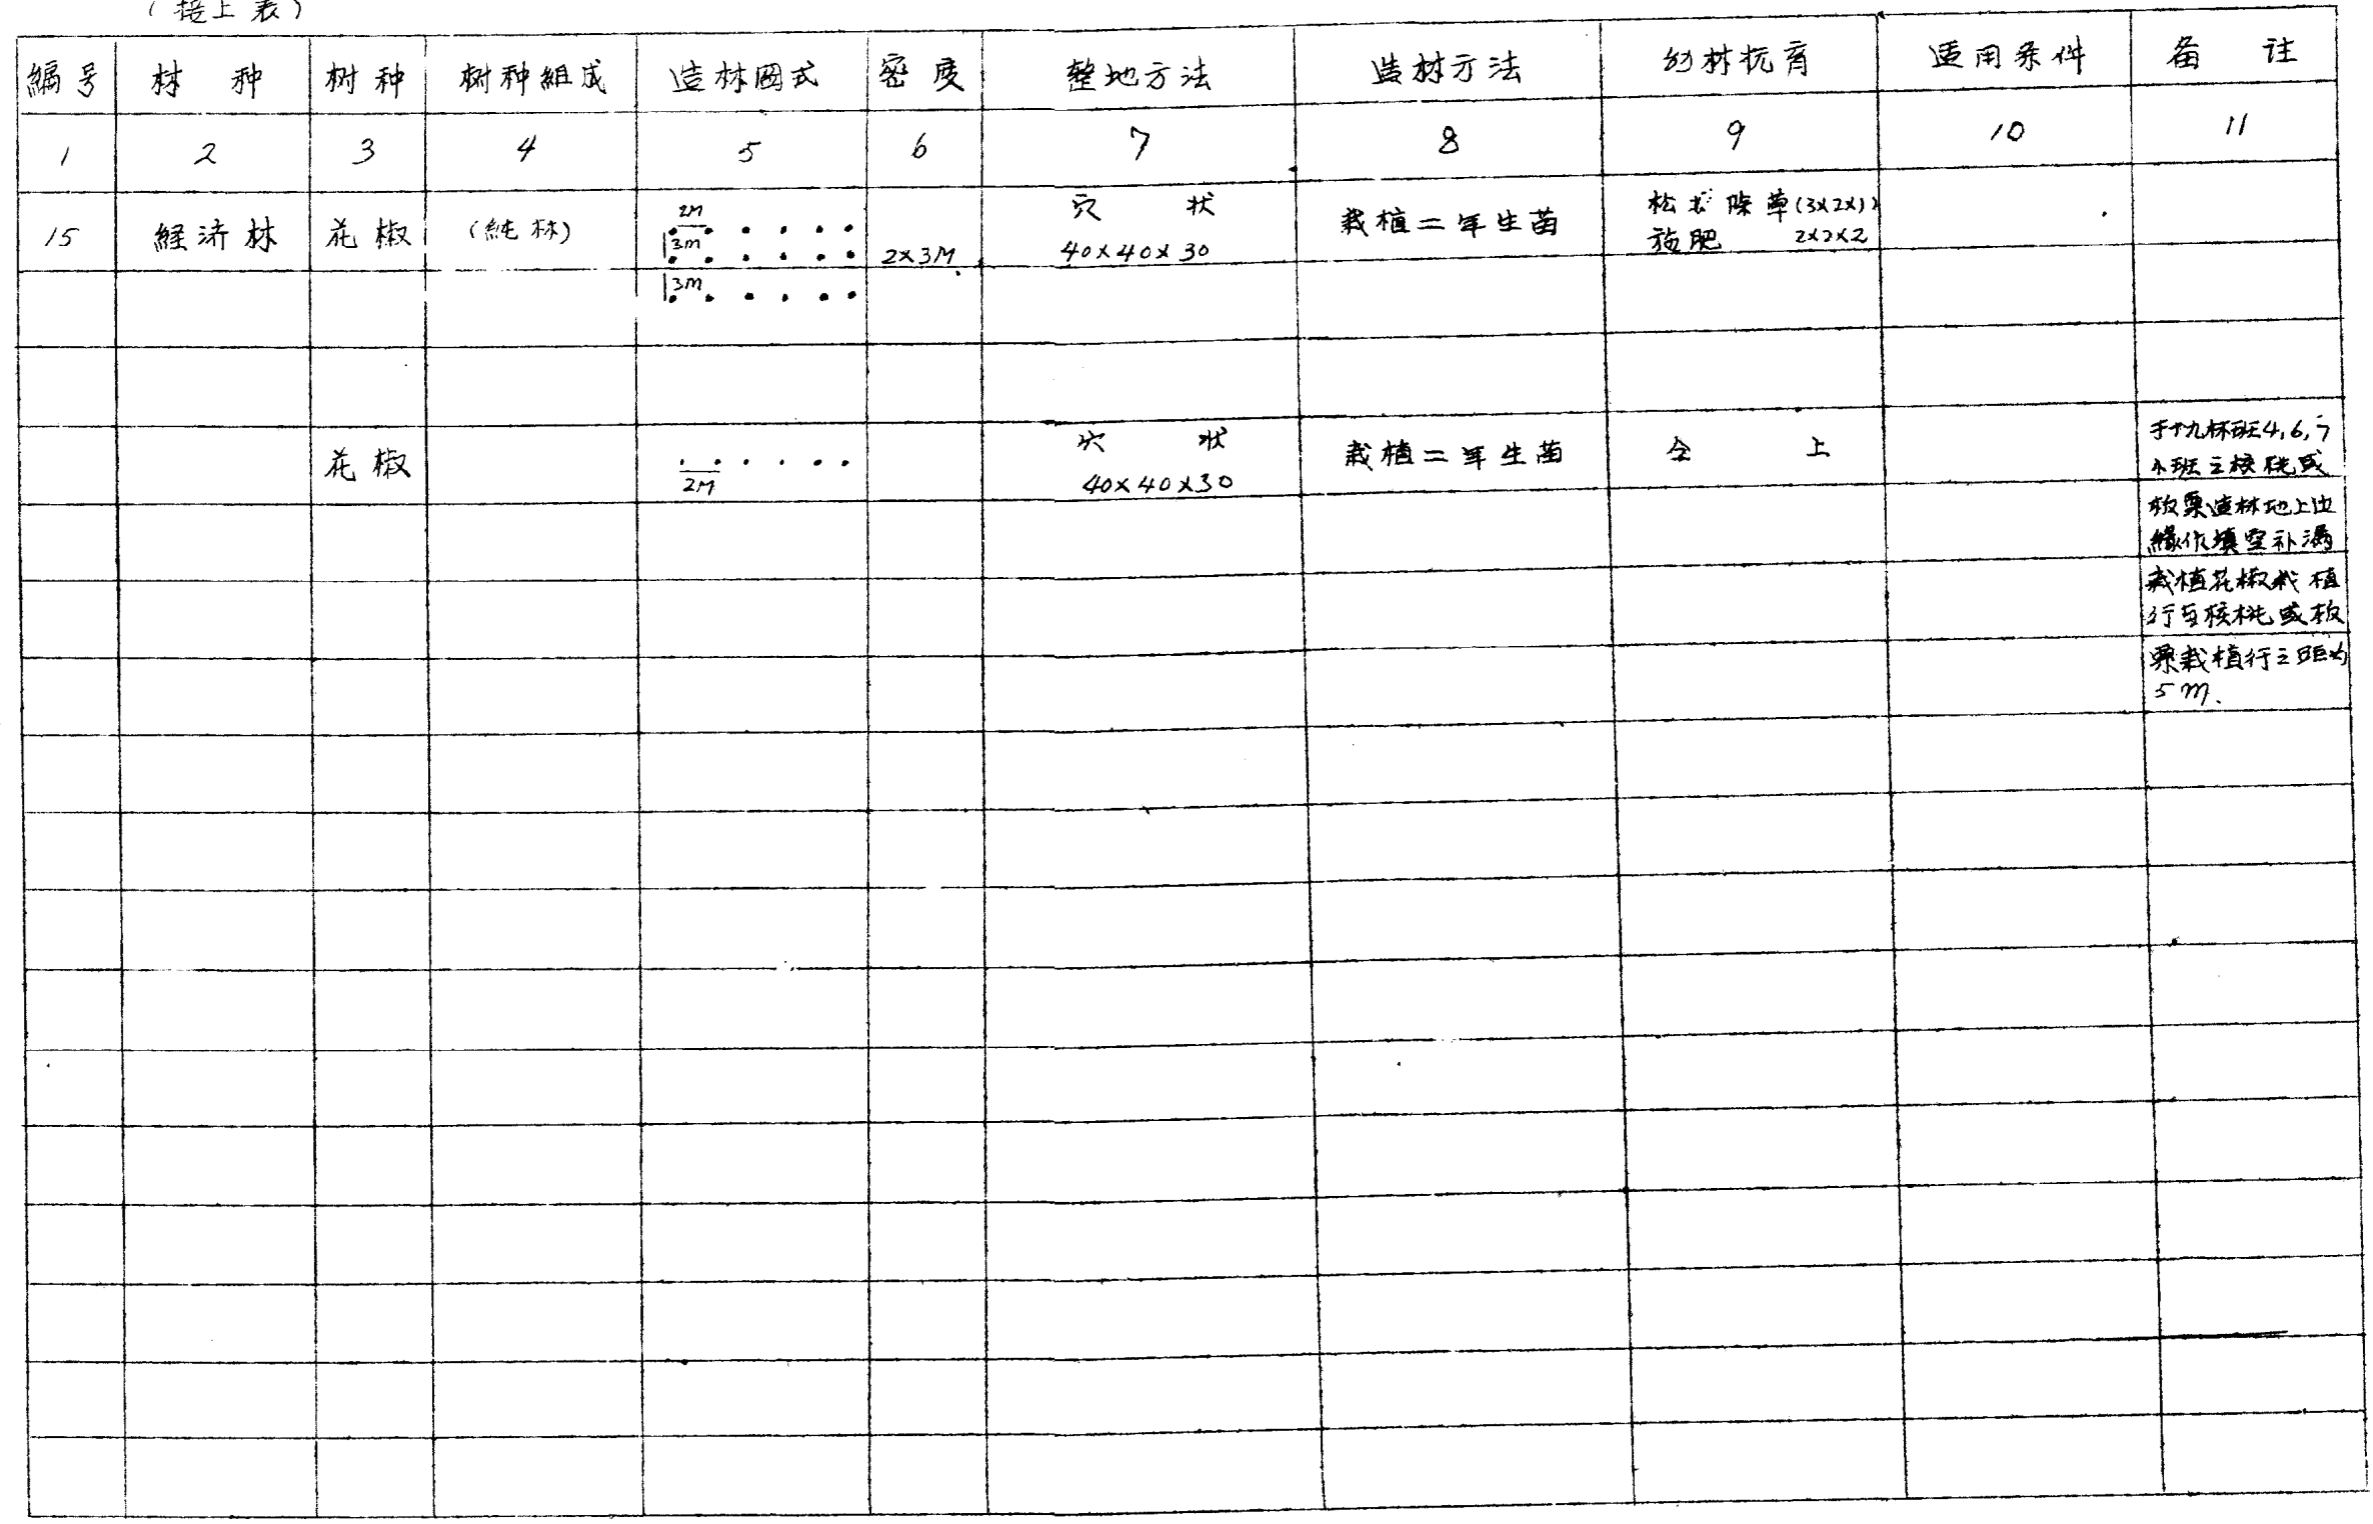 (接上表)
編号 林种 树种 树种組成 造林図式 密度 整地方法 造林方法 幼林抚育 适用条件 备注
1 2 3 4 5 6 7 8 9 10 11
15 経济林 花椒 (純林) 2M 3m 3m 2×3M 穴状 40×40×30 栽植二年生苗 松土除草(3×2×1)
施肥 2×2×2
花椒 2M 穴状 40×40×30 栽植二年生苗 仝上 于十九林班4,6,7
小班之核桃或
板栗造林地上边
緣作填空补漏
栽植花椒栽植
行与核桃或板
栗栽植行之距为
5m.